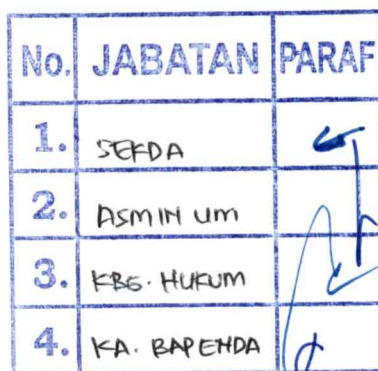 No. JABATAN PARAF
1. SEKDA
2. ASMIN UM
3. KBG. HUKUM
4. KA. BAPENDA